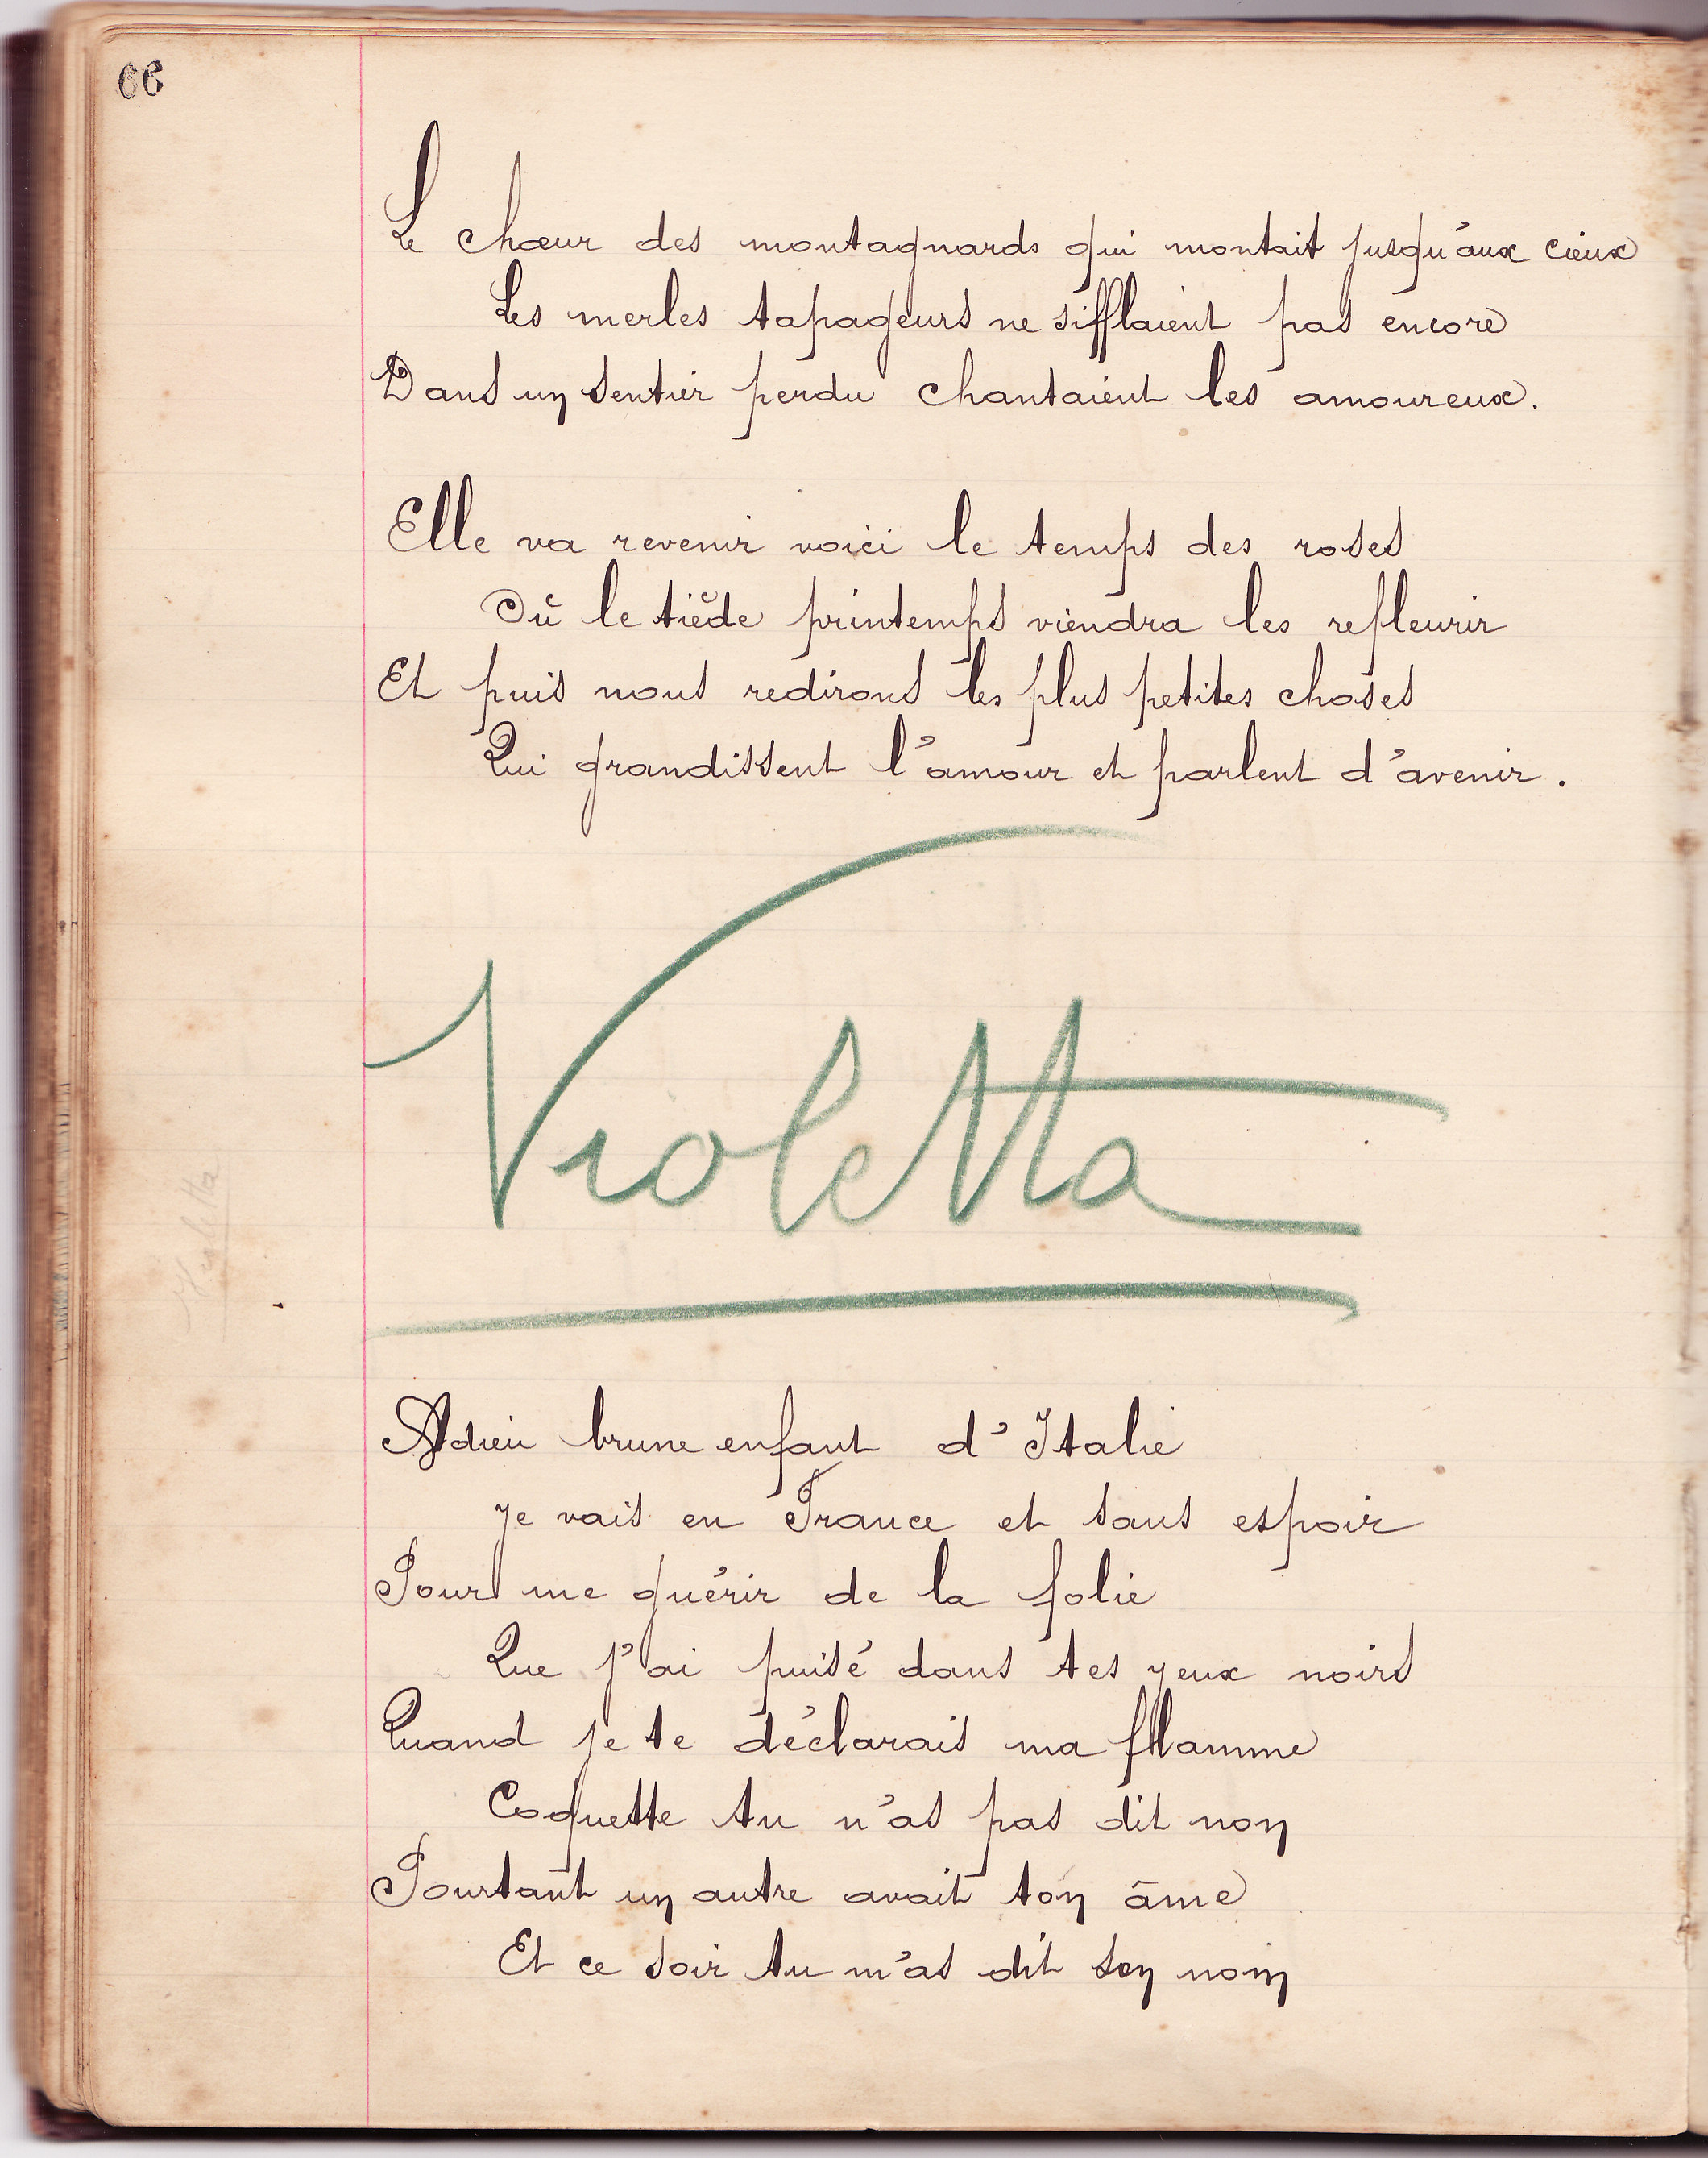 66
Le chœur des montagnards qui montait jusqu'aux cieux
Les merles tapageurs ne sifflaient pas encore
Dans un sentier perdu chantaient les amoureux.
Elle va revenir voici le temps des roses
Où le tiède printemps viendra les refleurir
Et puis nous redirons les plus petites choses
Qui grandissent l'amour et parlent d'avenir.
Violetta
Violetta
Adieu brune enfant d'Italie
je vais en France et sans espoir
Pour me guérir de la folie
Que j'ai puisé dans tes yeux noirs
Quand je te déclarais ma flamme
Coquette tu n'as pas dit non
Pourtant un autre avait ton âme
Et ce soir tu m'as dit son nom